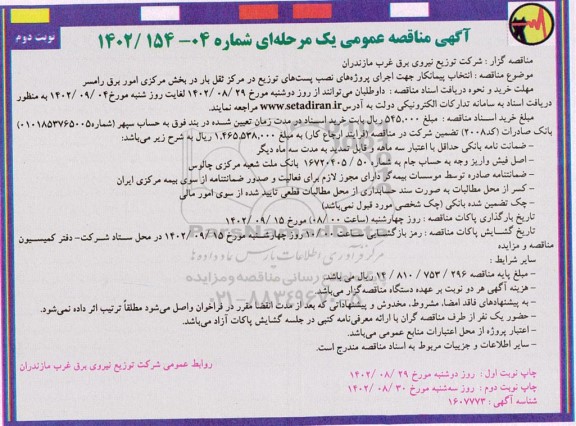 نوبت دوم
آگهی مناقصه عمومی یک مرحله‌ای شماره ۰۴- ۱۵۴ /۱۴۰۲
مناقصه گزار : شرکت توزیع نیروی برق غرب مازندران
موضوع مناقصه : انتخاب پیمانکار جهت اجرای پروژه‌های نصب پست‌های توزیع در مرکز ثقل بار در بخش مرکزی امور برق رامسر
مهلت خرید و نحوه دریافت اسناد مناقصه : داوطلبان می‌توانند از روز دوشنبه مورخ ۲۹ /۰۸ /۱۴۰۲ لغایت روز شنبه مورخ ۰۴ /۰۹ /۱۴۰۲ به منظور
دریافت اسناد به سامانه تدارکات الکترونیکی دولت به آدرس www.setadiran.ir مراجعه نمایند.
مبلغ خرید اسناد مناقصه : مبلغ ۵۴۵,۰۰۰ ریال بابت خرید اسناد در مدت زمان تعیین شده در بند فوق به حساب سپهر (شماره ۰۱۰۱۸۵۳۷۶۵۰۰۵)
بانک صادرات (کد ۲۰۰۸) تضمین شرکت در مناقصه (فرایند ارجاع کار) به مبلغ ۱,۴۶۵,۵۳۸,۰۰۰ ریال به شرح زیر می‌باشد:
- ضمانت نامه بانکی حداقل با اعتبار سه ماهه و قابل تمدید به مدت سه ماه دیگر
- اصل فیش واریز وجه به حساب جام به شماره ۵۰ / ۱۶۷۲۰۴۰۵ بانک ملت شعبه مرکزی چالوس
- ضمانتنامه صادره توسط موسسات بیمه گر دارای مجوز لازم برای فعالیت و صدور ضمانتنامه از سوی بیمه مرکزی ایران
- کسر از محل مطالبات به صورت سند حسابداری از محل مطالبات قطعی تایید شده از سوی امور مالی
- چک تضمین شده بانکی (چک شخصی مورد قبول نمی‌باشد)
تاریخ بارگذاری پاکات مناقصه : روز چهارشنبه (ساعت ۰۸/۰۰) مورخ ۱۵ /۰۹ /۱۴۰۲
تاریخ گشایش پاکات مناقصه : رمز بازگشایی ساعت ۱۰/۰۰ روز چهارشنبه مورخ ۱۵ /۰۹ /۱۴۰۲ در محل ستاد شرکت- دفتر کمیسیون
مناقصه و مزایده
سایر شرایط :
- مبلغ پایه مناقصه ۲۹۶ / ۷۵۳ / ۸۱۰ / ۱۲ ریال می باشد.
- هزینه آگهی هر دو نوبت بر عهده دستگاه مناقصه‌گزار می‌باشد.
- به پیشنهادهای فاقد امضا، مشروط، مخدوش و پیشنهاداتی که بعد از مدت انقضا مقرر در فراخوان واصل می‌شود مطلقاً ترتیب اثر داده نمی‌شود.
- حضور یک نفر از طرف مناقصه گران با ارائه معرفی‌نامه کتبی در جلسه گشایش پاکات آزاد می‌باشد.
- اعتبار پروژه از محل اعتبارات منابع عمومی می‌باشد.
- سایر اطلاعات و جزییات مربوط به اسناد مناقصه مندرج است.
چاپ نوبت اول : روز دوشنبه مورخ ۲۹ /۰۸ /۱۴۰۲
چاپ نوبت دوم : روز سه‌شنبه مورخ ۳۰ /۰۸ /۱۴۰۲
شناسه آگهی : ۱۶۰۷۷۷۳
روابط عمومی شرکت توزیع نیروی برق غرب مازندران